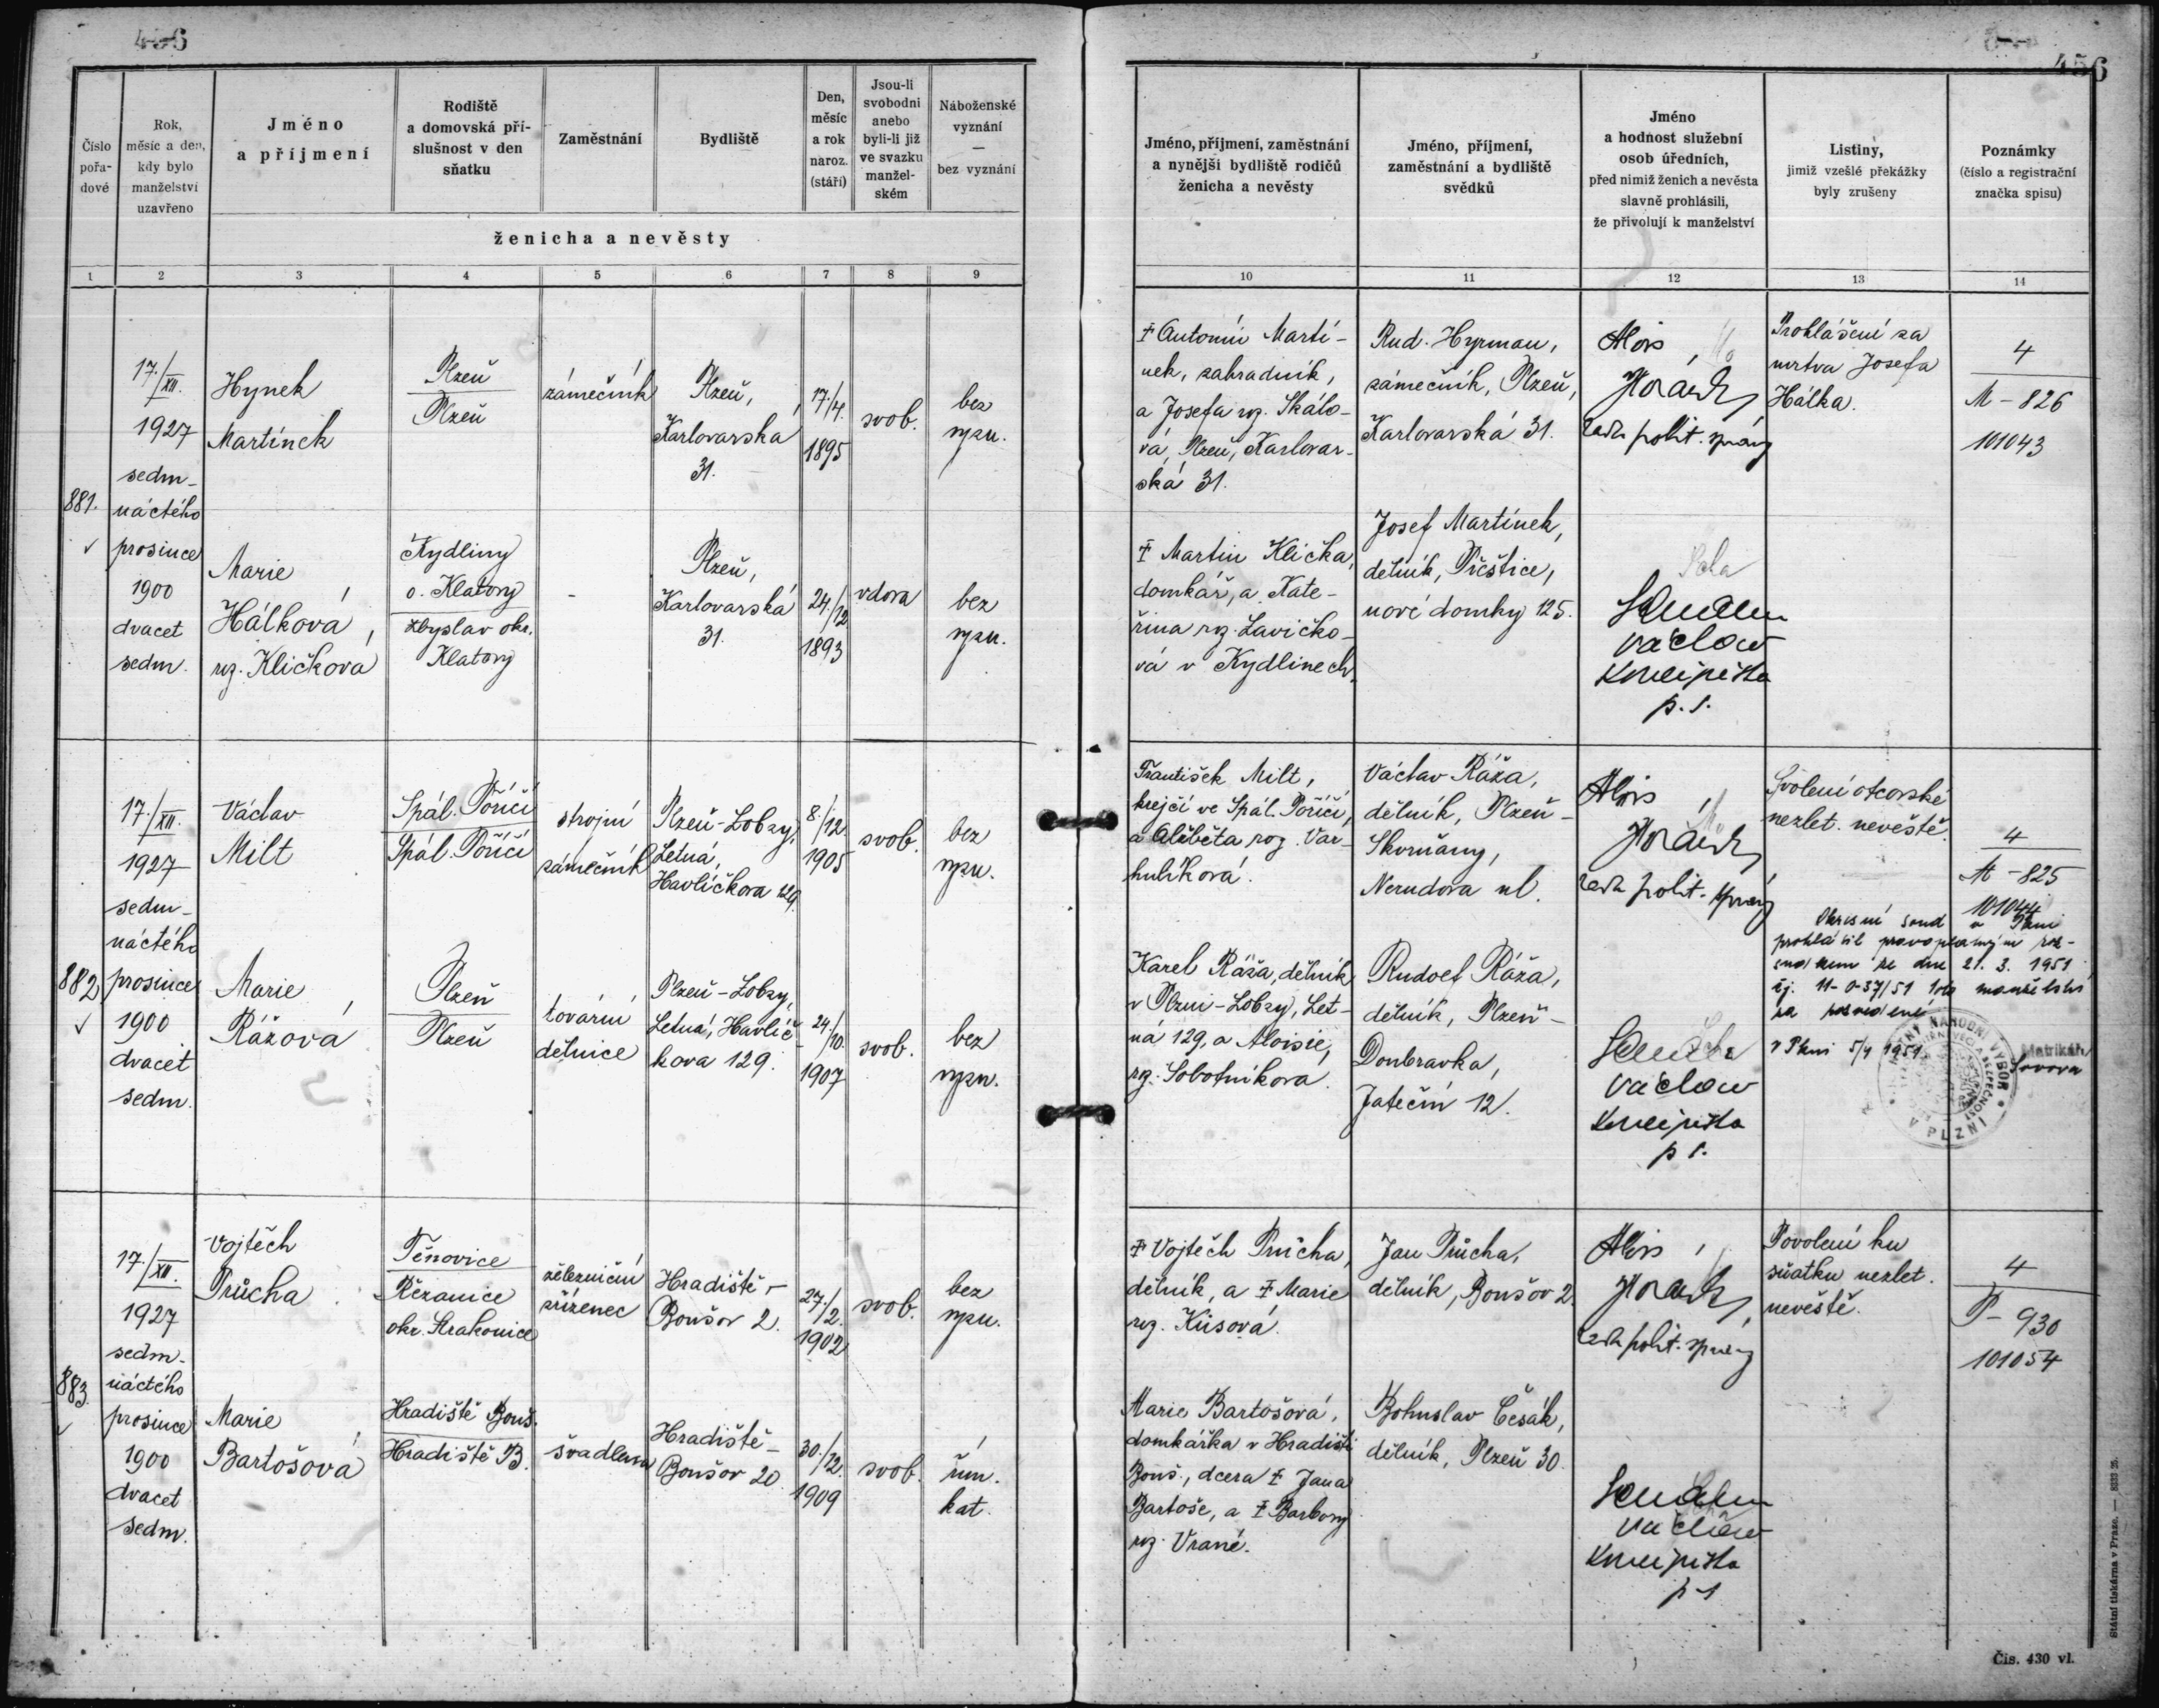 456
456
Číslo
pořa-
dové
Rok,
měsíc a den,
kdy bylo
manželství
uzavřeno
Jméno
a příjmení
Rodiště
a domovská pří-
slušnost v den
sňatku
Zaměstnání
Bydliště
Den,
měsíc
a rok
naroz.
(stáří)
Jsou-li
svobodni
anebo
byli-li již
ve svazku
manžel-
ském
Náboženské
vyznání
—
bez vyznání
ženicha a nevěsty
Jméno, příjmení, zaměstnání
a nynější bydliště rodičů
ženicha a nevěsty
Jméno, příjmení,
zaměstnání a bydliště
svědků
Jméno
a hodnost služební
osob úředních,
před nimiž ženich a nevěsta
slavně prohlásili,
že přivolují k manželství
Listiny,
jimiž vzešlé překážky
byly zrušeny
Poznámky
(číslo a registrační
značka spisu)
1 2 3 4 5 6 7 8 9
10 11 12 13 14
881.
17./XII.
1927
sedm-
náctého
prosince
1900
dvacet
sedm.
Hynek
Martínek
Plzeň
Plzeň
zámečník
Plzeň,
Karlovarska
31.
17./4.
1895
svob.
bez
vyzn.
Marie
Hálková,
roz. Kličková
Kydliny
o. Klatovy
Zbyslav okr.
Klatovy
-
Plzeň,
Karlovarská
31.
24./12
1893
vdova
bez
vyzn.
‡ Antonín Martí-
nek, zahradník,
a Josefa roz. Skálo-
vá, Plzeň, Karlovar-
ská 31.
‡ Martin Klička,
domkář, a Kate-
řina roz. Lavičko-
vá v Kydlinech.
Rud. Hyrman,
zámečník, Plzeň,
Karlovarská 31.
Josef Martínek,
dělník, Přeštice,
nové domky 125.
Alois
Horách
rada polit. správy
Václav
p. s.
Prohlášení za
mrtva Josefa
Hálka.
4
M - 826
101043
882
17./XII.
1927
sedm-
náctého
prosince
1900
dvacet
sedm.
Václav
Milt
Spál. Poříčí
Spál. Poříčí
strojní
zámečník
Plzeň-Lobzy,
Letná,
Havlíčkova 129.
8./12.
1905
svob.
bez
vyzn.
Marie
Rážová
Plzeň
Plzeň
tovární
dělnice
Plzeň-Lobzy,
Letná, Havlíč-
kova 129.
24./10.
1907
svob.
bez
vyzn.
František Milt,
krejčí ve Spál. Poříčí,
a Alžběta roz. Var-
hulíková.
Karel Ráža, dělník
v Plzni-Lobzy, Let-
ná 129, a Aloisie,
rz. Sobotníková.
Václav Ráža,
dělník, Plzeň-
Skvrňany,
Nerudova ul.
Rudolf Ráža,
dělník, Plzeň-
Doubravka,
Jateční 12.
Alois
Horách
rada polit. správy
Václav
p. s.
Svolení otcovské
nezlet. nevěstě.
4
M - 825
101044
Okresní soud v Plzni
prohlásil pravoplatným roz-
sudkem ze dne 21. 3. 1951
čj. 11-0-37/51 toto manželství
za rozvedené
v Plzni 5/4 1951
Matrikář:
NÁRODNÍ VÝBOR
V PLZNI
883.
17./XII.
1927
sedm-
náctého
prosince
1900
dvacet
sedm.
Vojtěch
Průcha
Těnovice
Řezanice
okr. Strakonice
železniční
zřízenec
Hradiště-
Boušov 2.
27./2.
1902
svob.
bez
vyzn.
Marie
Bartošová
Hradiště Bouš.
Hradiště B.
švadlena
Hradiště-
Boušov 20
30./12.
1909
svob.
řím.
kat.
‡ Vojtěch Průcha,
dělník, a ‡ Marie
roz. Kůsová.
Marie Bartošová,
domkářka v Hradišti
Bouš., dcera ‡ Jana
Bartoše, a ‡ Barbory
roz. Vrané.
Jan Průcha,
dělník, Boušov 2.
Bohuslav Česák,
dělník, Plzeň 30.
Alois
Horách,
rada polit. správy
Václav
p. s.
Povolení ku
sňatku nezlet.
nevěstě.
4
P - 930
101054
Státní tiskárna v Praze. —
Čís. 430 vl.